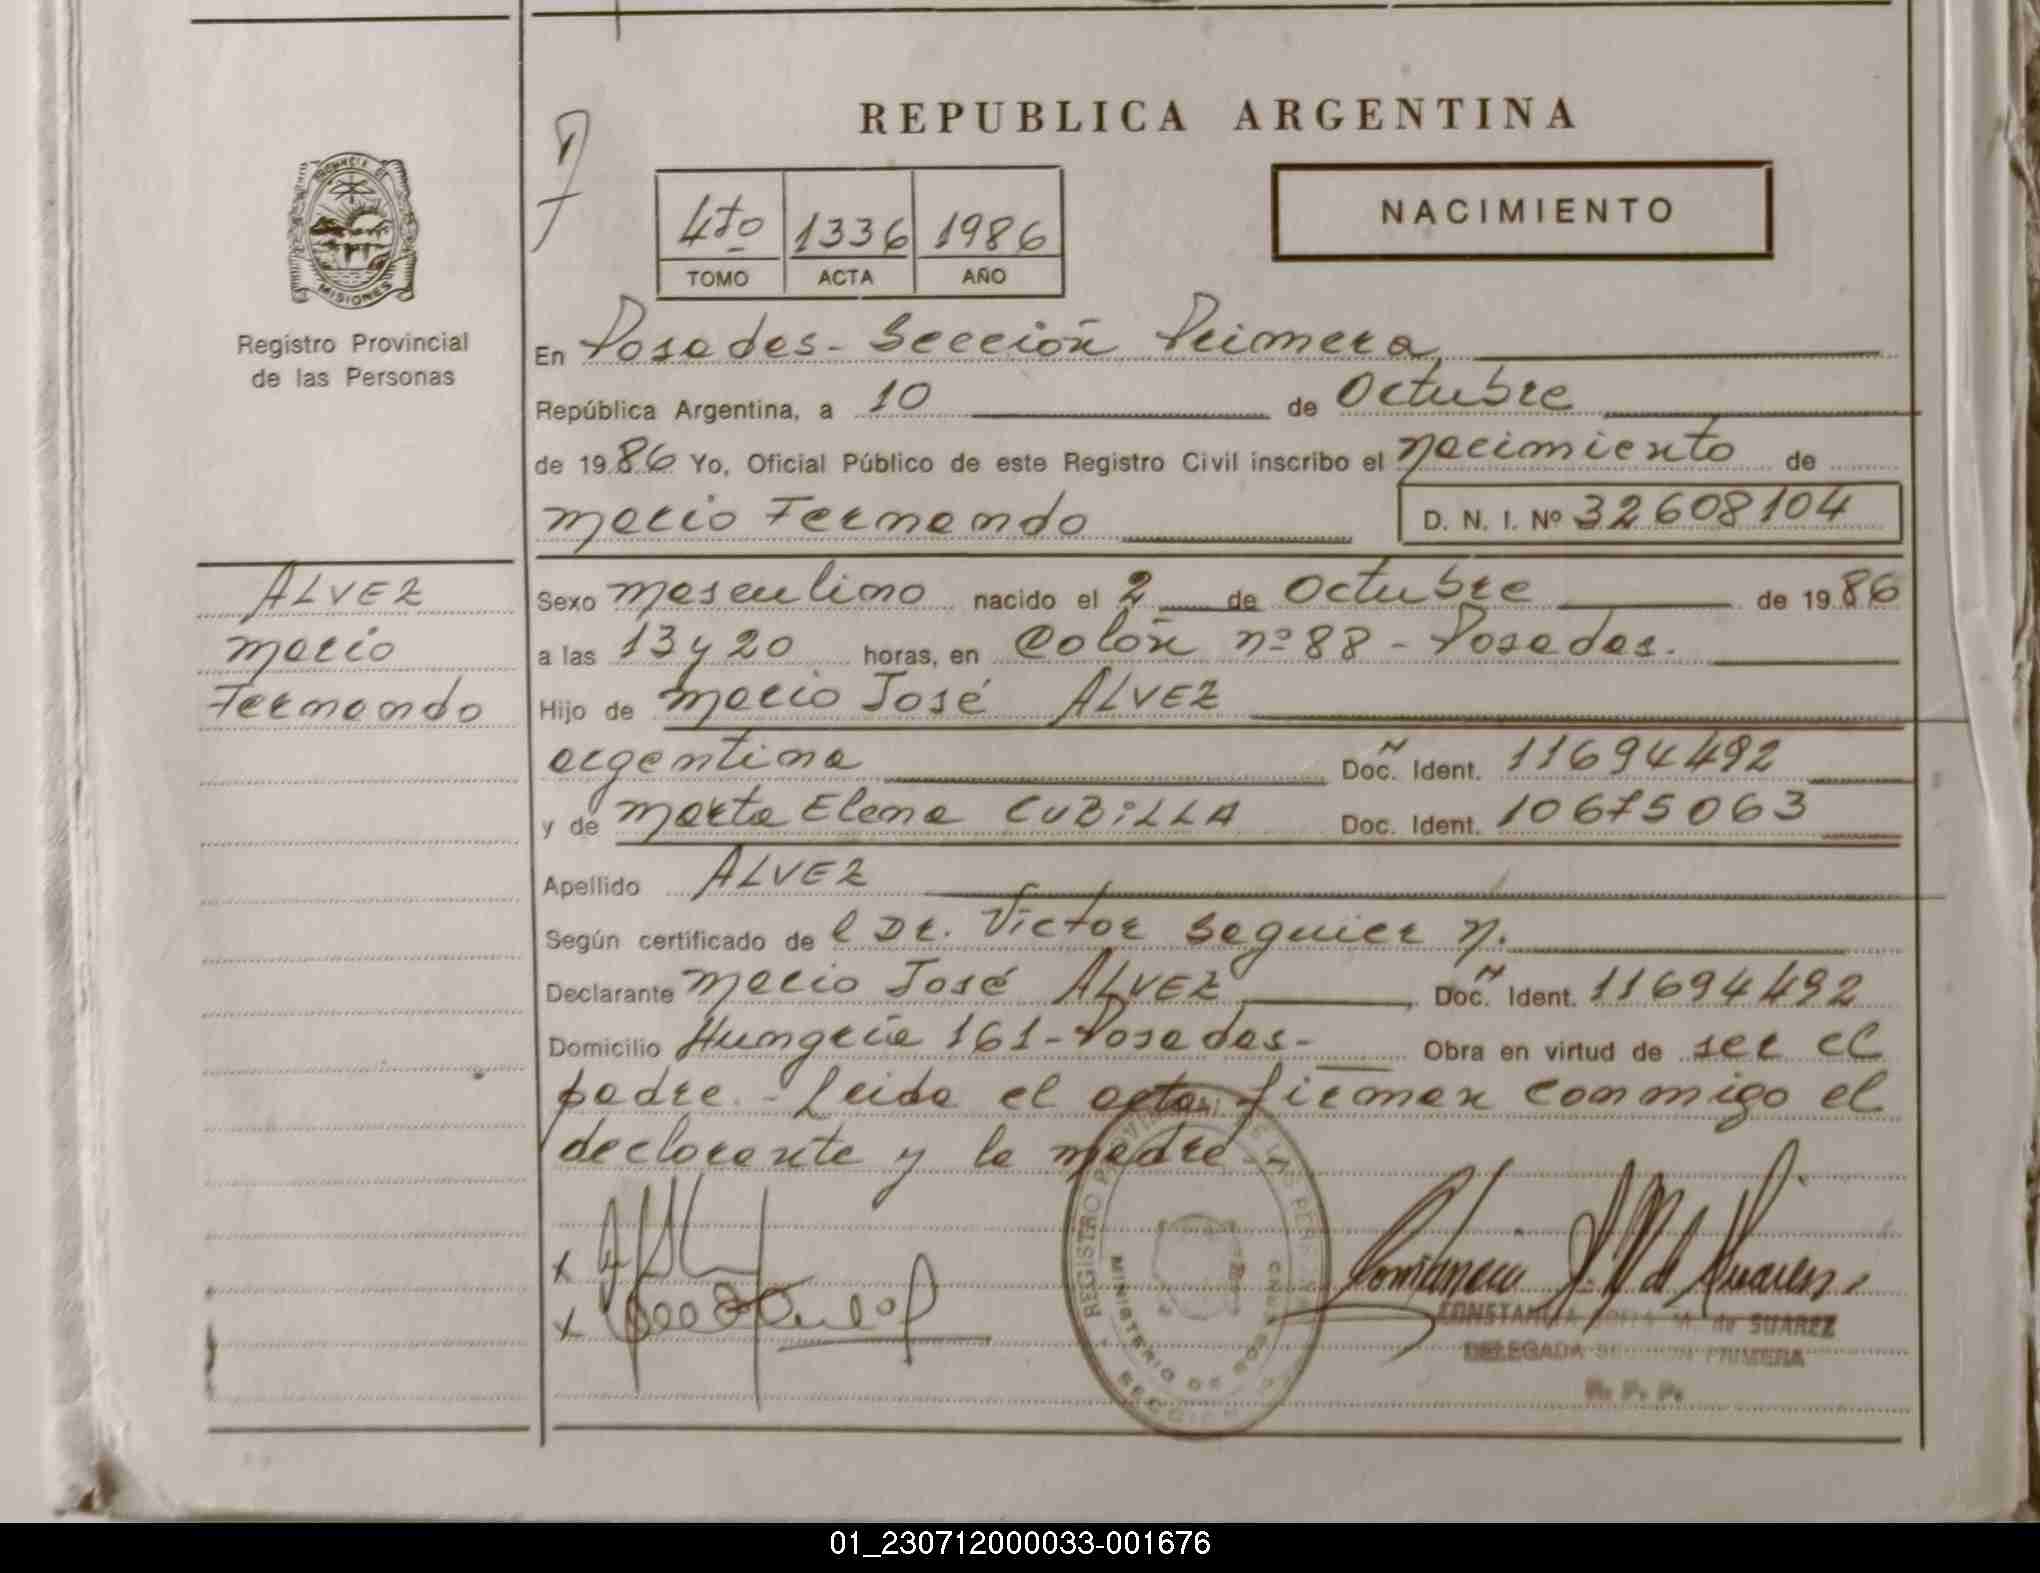 REPUBLICA ARGENTINA
PROVINCIA DE
MISIONES
Registro Provincial
de las Personas
4to 1336 1986
TOMO ACTA AÑO
NACIMIENTO
En Posadas - Sección Primera
República Argentina, a 10 de Octubre
de 1986 Yo, Oficial Público de este Registro Civil inscribo el nacimiento de
Mario Fernando D. N. I. Nº 32608104
ALVEZ
Mario
Fernando
Sexo masculino nacido el 2 de Octubre de 1986
a las 13 y 20 horas, en Colón nº 88 - Posadas.
Hijo de Mario José ALVEZ
argentina Doc. Ident. 11694492
y de Marta Elena CUBILLA Doc. Ident. 10675063
Apellido ALVEZ
Según certificado de l Dr. Victor Seguier N.
Declarante Mario José ALVEZ, Doc. Ident. 11694492
Domicilio Hungría 161 - Posadas - Obra en virtud de ser el
padre. - Leida el acta firman conmigo el
declarante y la madre. -
REGISTRO PROVINCIAL DE LAS PERSONAS
MINISTERIO DE
SECCION
CONSTANCIA SOFIA M. de SUAREZ
DELEGADA SECCION PRIMERA
R. P. P.
01_230712000033-001676